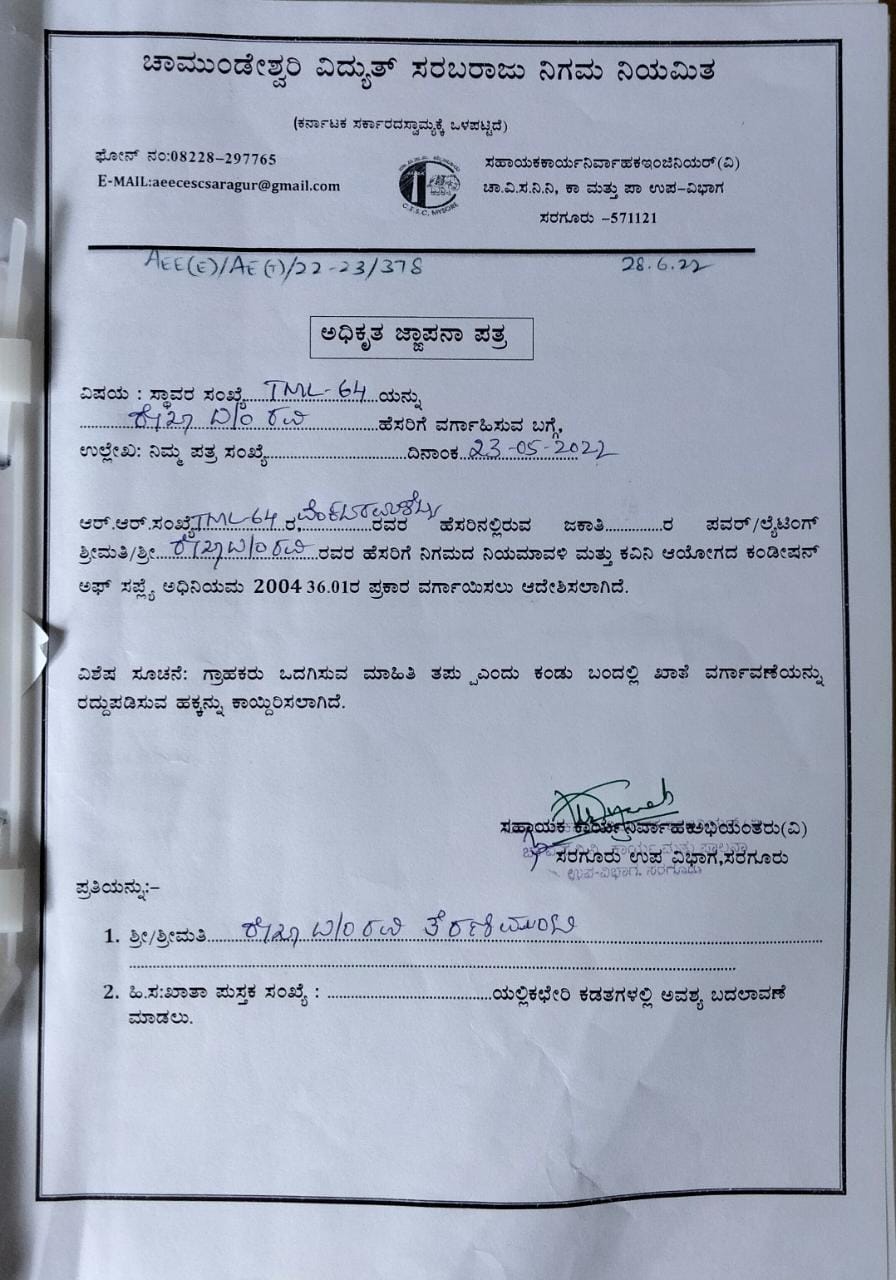 ಚಾಮುಂಡೇಶ್ವರಿ ವಿದ್ಯುತ್ ಸರಬರಾಜು ನಿಗಮ ನಿಯಮಿತ
(ಕರ್ನಾಟಕ ಸರ್ಕಾರದಸ್ವಾಮ್ಯಕ್ಕೆ ಒಳಪಟ್ಟಿದೆ)
ಫೋನ್ ನಂ:08228-297765
E-MAIL:aeecescsaragur@gmail.com
C.E.S.C, MYSORE
ಸಹಾಯಕಕಾರ್ಯನಿರ್ವಾಹಕಇಂಜಿನಿಯರ್(ವಿ)
ಚಾ.ವಿ.ಸ.ನಿ.ನಿ, ಕಾ ಮತ್ತು ಪಾ ಉಪ-ವಿಭಾಗ
ಸರಗೂರು -571121
AEE(E)/AE(T)/22-23/378 28.6.22
ಅಧಿಕೃತ ಜ್ಞಾಪನಾ ಪತ್ರ
ವಿಷಯ : ಸ್ಥಾವರ ಸಂಖ್ಯೆ TML-64 ಯನ್ನು
W/o ರವಿ ಹೆಸರಿಗೆ ವರ್ಗಾಹಿಸುವ ಬಗ್ಗೆ,
ಉಲ್ಲೇಖ: ನಿಮ್ಮ ಪತ್ರ ಸಂಖ್ಯೆ..........ದಿನಾಂಕ 23-05-2022
ಆರ್.ಆರ್.ಸಂಖ್ಯೆ TML-64 ರ, ವೆಂಕಟರಾಮಶೆಟ್ಟಿ ರವರ ಹೆಸರಿನಲ್ಲಿರುವ ಜಕಾತಿ..........ರ ಪವರ್/ಲೈಟಿಂಗ್
ಶ್ರೀಮತಿ/ಶ್ರೀ W/o ರವಿ ರವರ ಹೆಸರಿಗೆ ನಿಗಮದ ನಿಯಮಾವಳಿ ಮತ್ತು ಕವಿನಿ ಆಯೋಗದ ಕಂಡೀಷನ್
ಆಫ್ ಸಪ್ಲೈ ಅಧಿನಿಯಮ 2004 36.01ರ ಪ್ರಕಾರ ವರ್ಗಾಯಿಸಲು ಆದೇಶಿಸಲಾಗಿದೆ.
ವಿಶೇಷ ಸೂಚನೆ: ಗ್ರಾಹಕರು ಒದಗಿಸುವ ಮಾಹಿತಿ ತಪ್ಪುಎಂದು ಕಂಡು ಬಂದಲ್ಲಿ ಖಾತೆ ವರ್ಗಾವಣೆಯನ್ನು
ರದ್ದುಪಡಿಸುವ ಹಕ್ಕನ್ನು ಕಾಯ್ದಿರಿಸಲಾಗಿದೆ.
ಸಹಾಯಕ ಕಾರ್ಯನಿರ್ವಾಹಕಅಭಿಯಂತರು(ವಿ)
ಸರಗೂರು ಉಪ ವಿಭಾಗ,ಸರಗೂರು
ಉಪ-ವಿಭಾಗ, ಸರಗೂರು
ಪ್ರತಿಯನ್ನು:-
1. ಶ್ರೀ/ಶ್ರೀಮತಿ W/o ರವಿ ತೆರಣಿಮುಂಟಿ
2. ಹಿ.ಸ:ಖಾತಾ ಪುಸ್ತಕ ಸಂಖ್ಯೆ : ..........ಯಲ್ಲಿಕಛೇರಿ ಕಡತಗಳಲ್ಲಿ ಅವಶ್ಯ ಬದಲಾವಣೆ
ಮಾಡಲು.